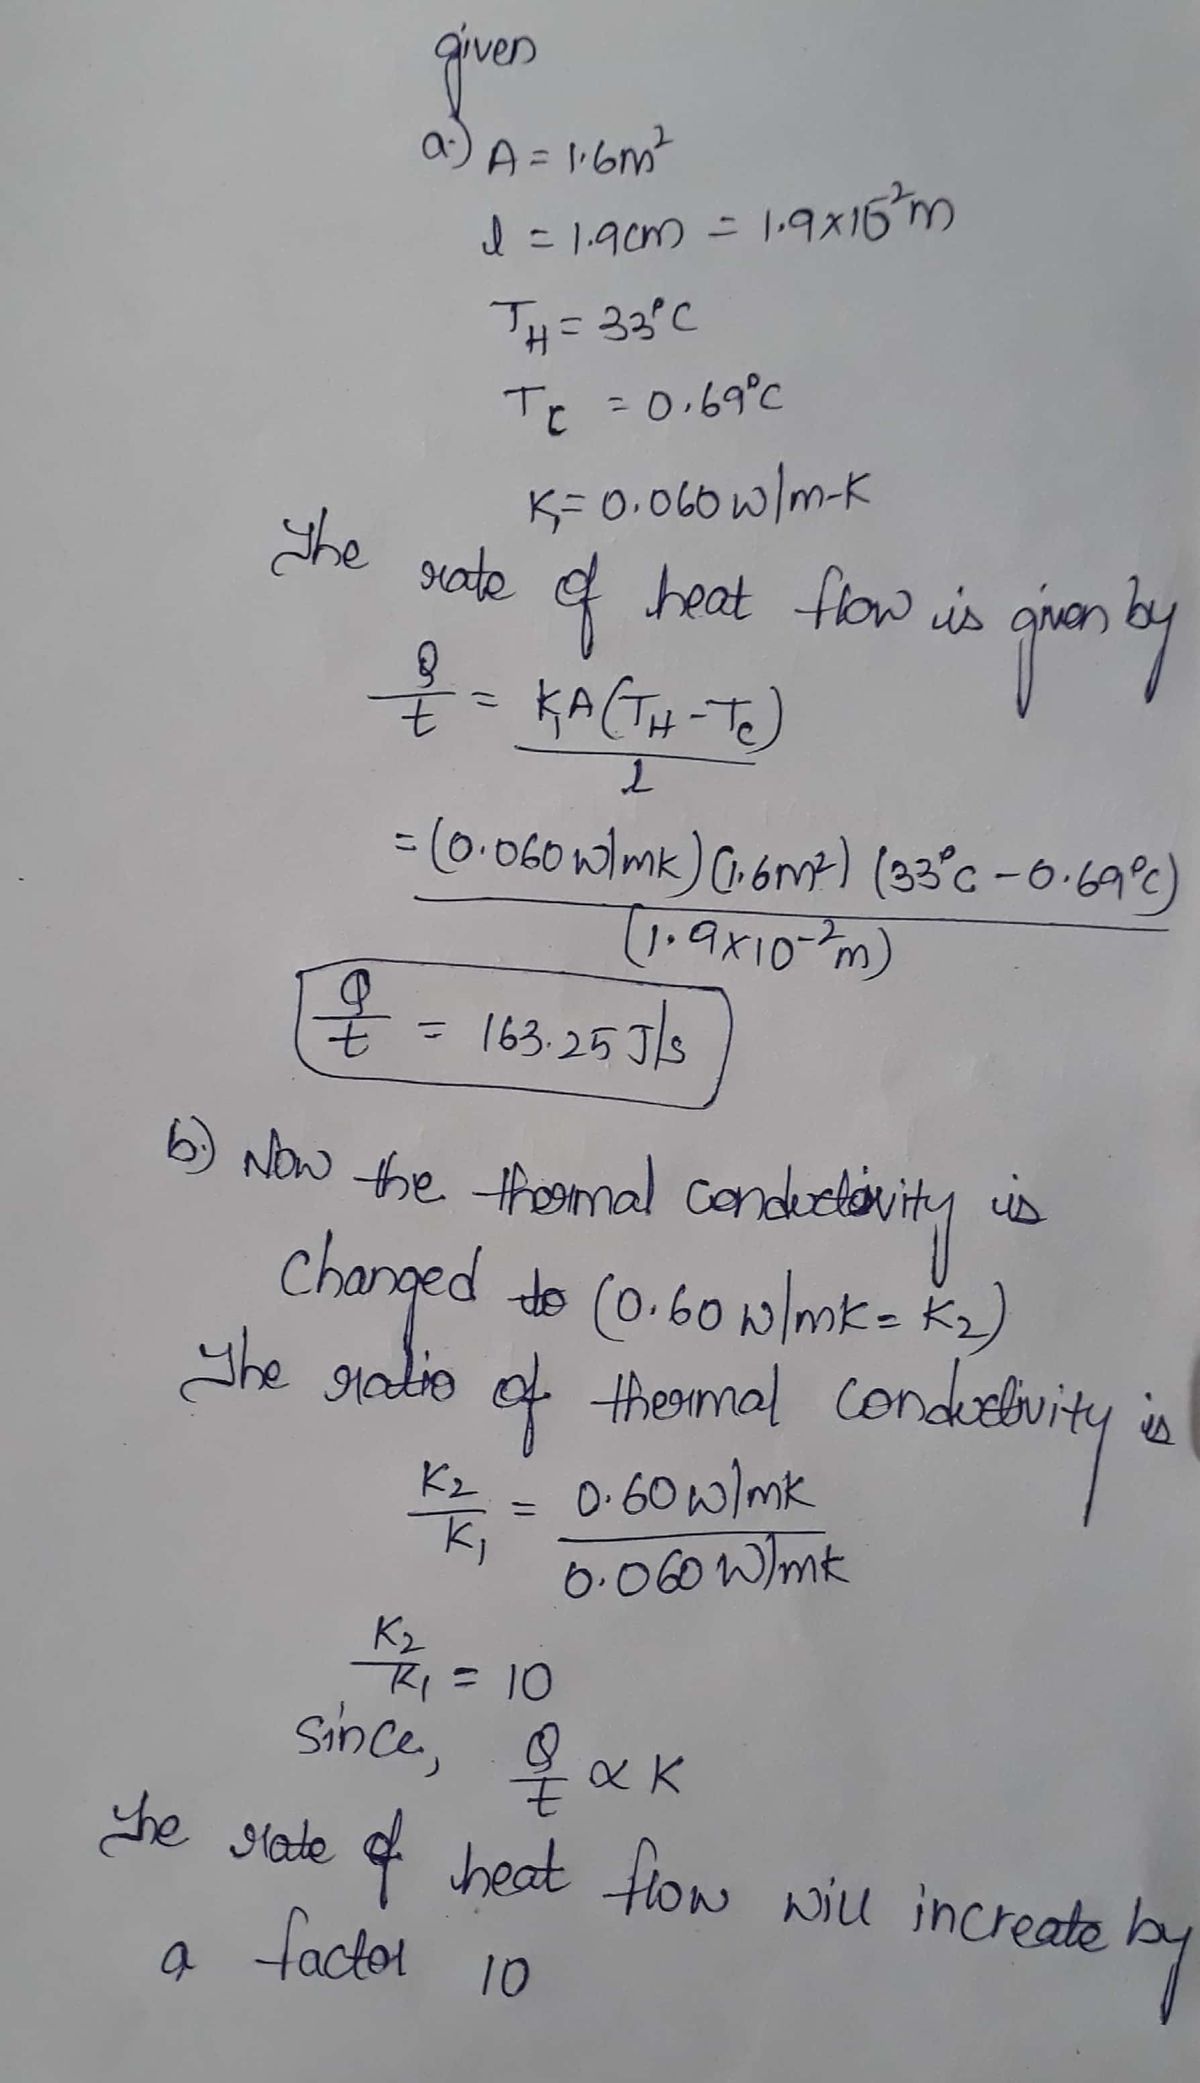 given
a.) A = 1.6m²
l = 1.9cm = 1.9×10⁻²m
T_H = 33°C
T_C = 0.69°C
K₁ = 0.060 W/m-K
The rate of heat flow is given by
Q/t = K₁A(T_H - T_C)/l
= (0.060 W/mK)(1.6m²)(33°C - 0.69°C)/(1.9×10⁻²m)
Q/t = 163.25 J/s
b.) Now the thermal conductivity is
changed to (0.60 W/mK = K₂)
The ratio of thermal conductivity is
K₂/K₁ = 0.60 W/mK/0.060 W/mK
K₂/K₁ = 10
Since, Q/t ∝ K
The rate of heat flow will increate by
a factor 10